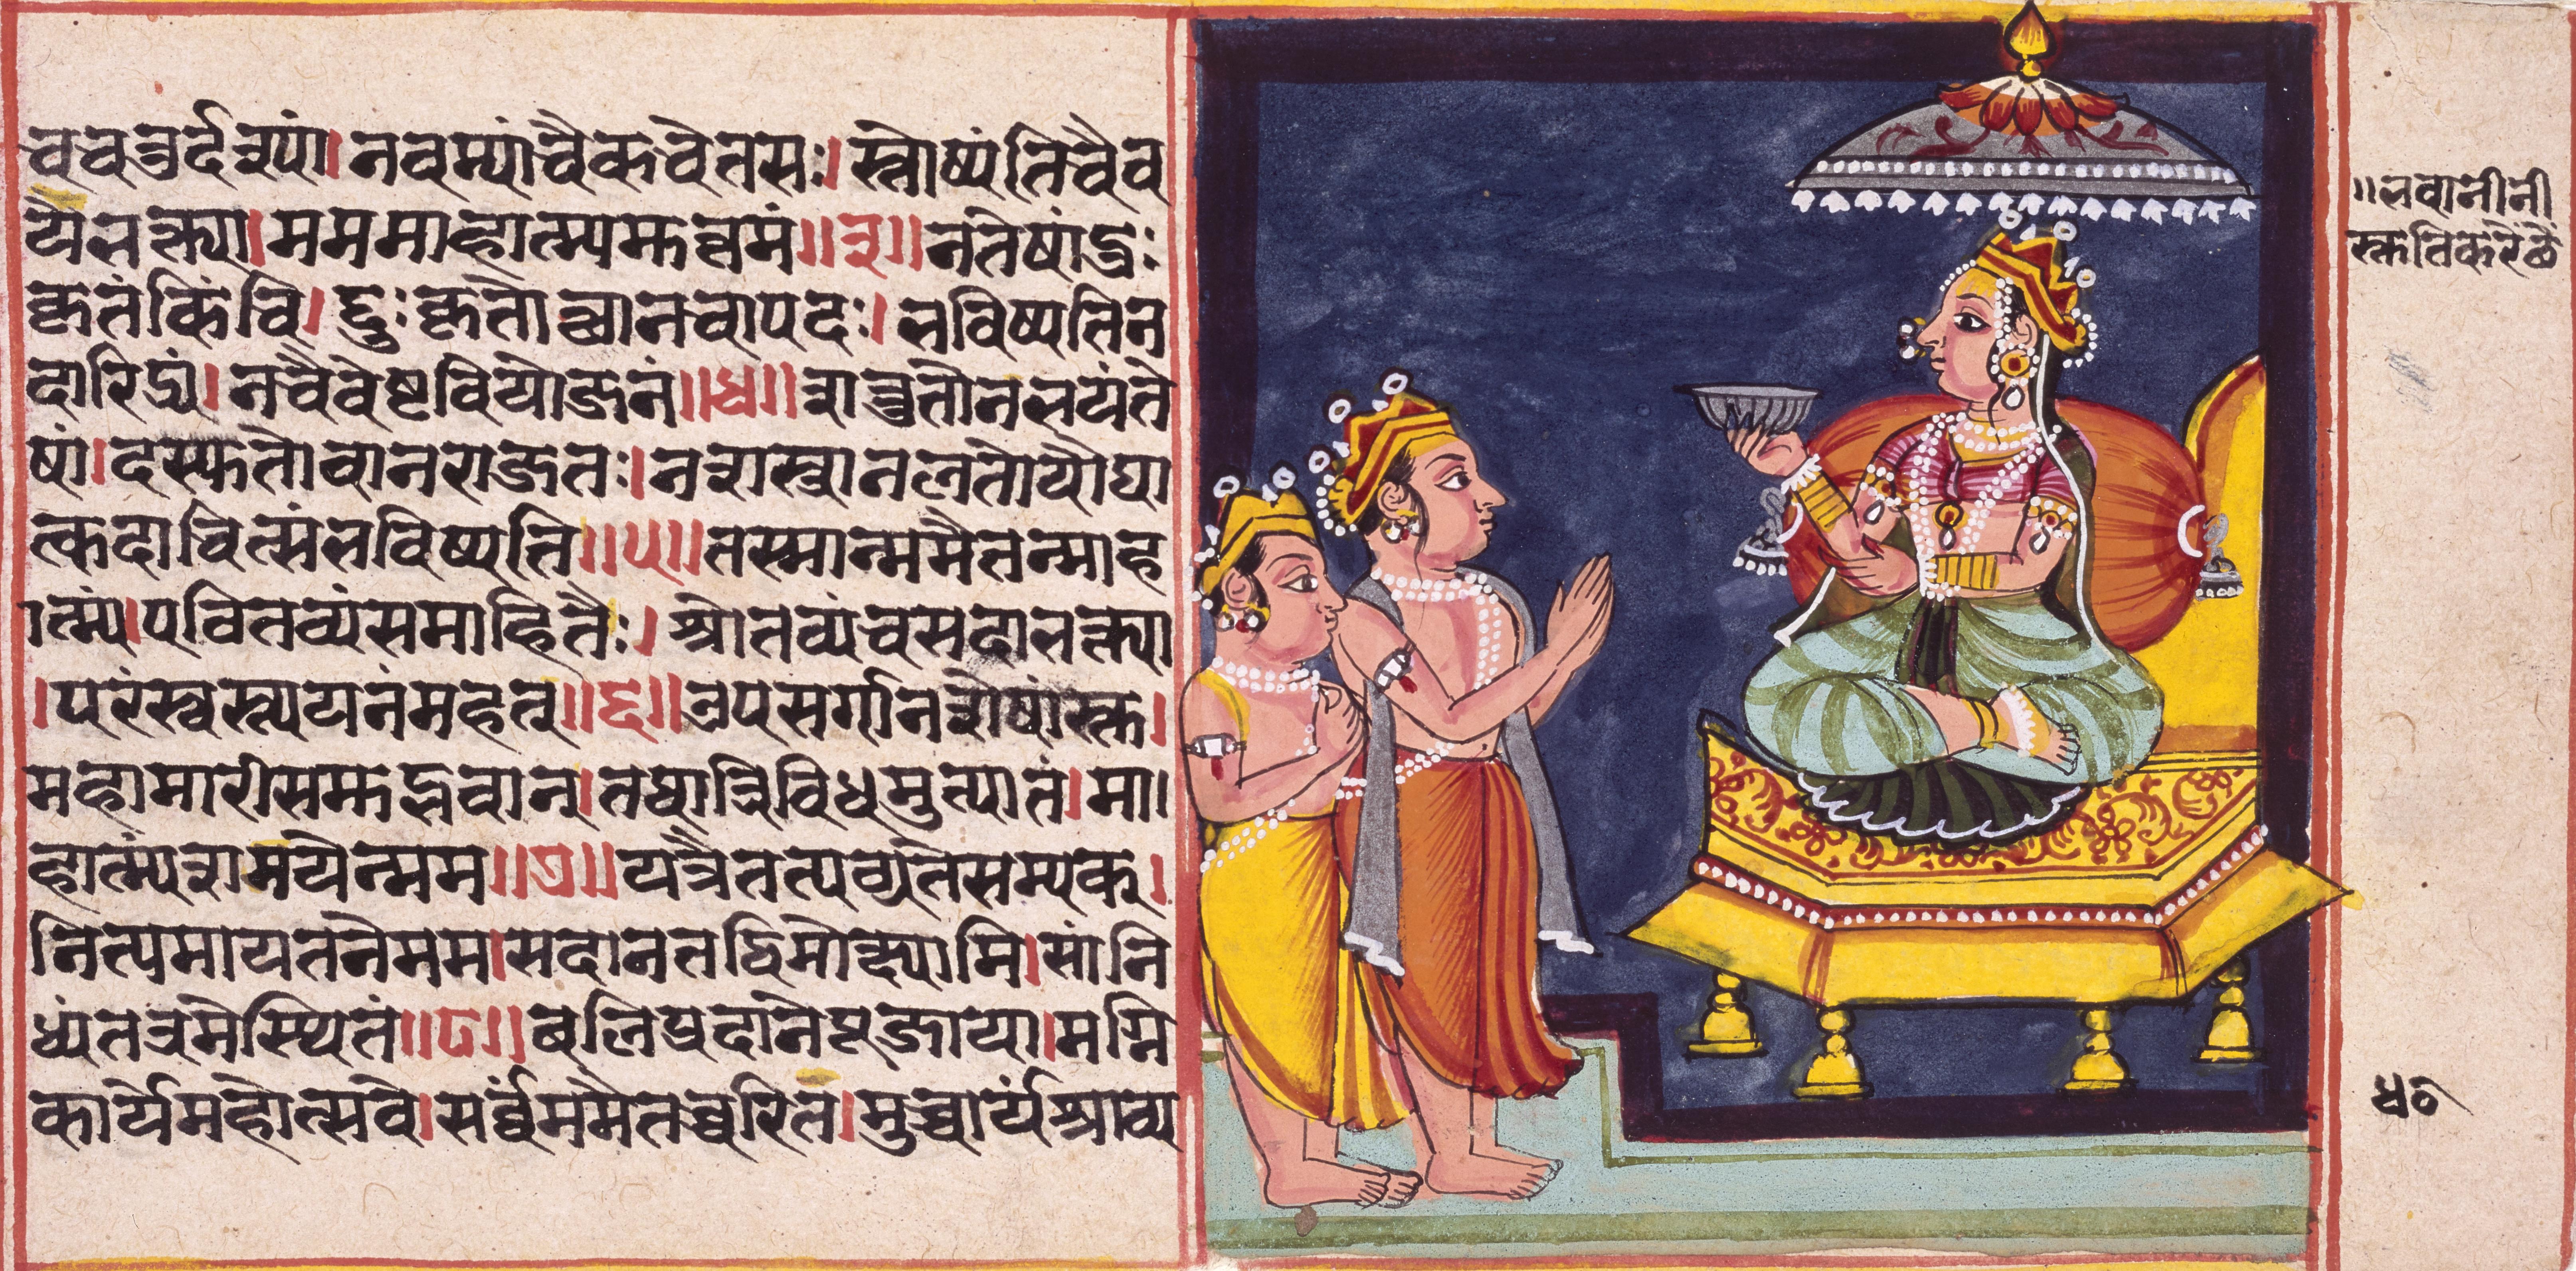 च चतुर्दश्यां। नवम्यां चैकचेतसः। स्तोष्यंति चैव
ये भक्त्या। मम माहात्म्यमुत्तमं॥३॥ न तेषां दुः
कृतं किंचि। द्दुःकृतोच्छा न चापदः। भविष्यति न
दारिद्र्यं। न चैवेष्टवियोजनं॥४॥ शत्रुतो न भयं ते
षां। दस्युतो वा न राजतः। न शस्त्रानलतोयौघा
त्कदाचित्संभविष्यति॥५॥ तस्मान्ममैतन्माह
ात्म्यं। पठितव्यं समाहितैः। श्रोतव्यं च सदा भक्त्या
। परं स्वस्त्ययनं महत्॥६॥ उपसर्गानशेषांस्तु।
महामारीसमुद्भवान्। तथा त्रिविधमुत्पातं। मा।
हात्म्यं शमयेन्मम॥७॥ यत्रैतत्पठ्यते सम्यक्।
नित्यमायतने मम। सदा न तद्विमोक्ष्यामि। सांनि
ध्यं तत्र मे स्थितं॥८॥ बलिप्रदाने पूजाया। मग्नि
कार्ये महोत्सवे। सर्व्वं ममैतच्चरित। मुच्चार्यं श्राव्य
॥भवानीनी
स्तुति करे छे